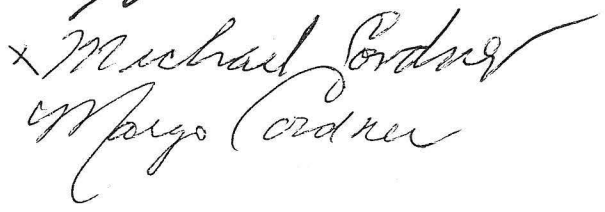 x Michael Cordner
Margo Cordner